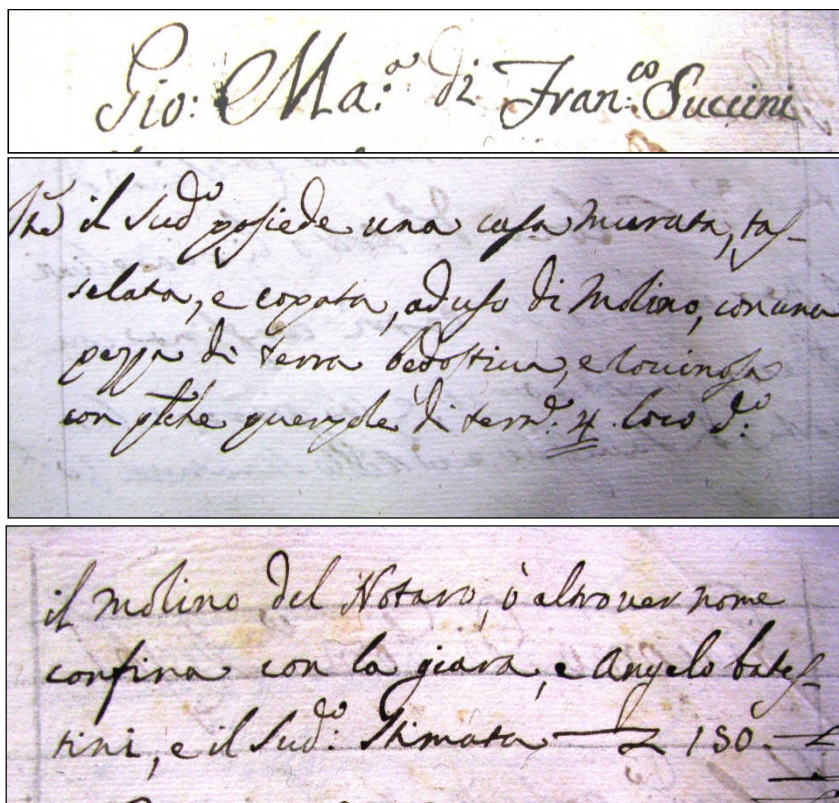 Gio: Ma:a di Fran:co Succini
Ite il Sudo posiede una casa murata, tas-
selata, e copata, ad uso di Molino, con una
pezza di terra bedostiva, e
con plche querzole di tern:e 4 loco d:o
il molino del Notaro, ò altro ver nome
confina con la giara, e Angelo bates-
tini, e il Sud:o Stimata 150